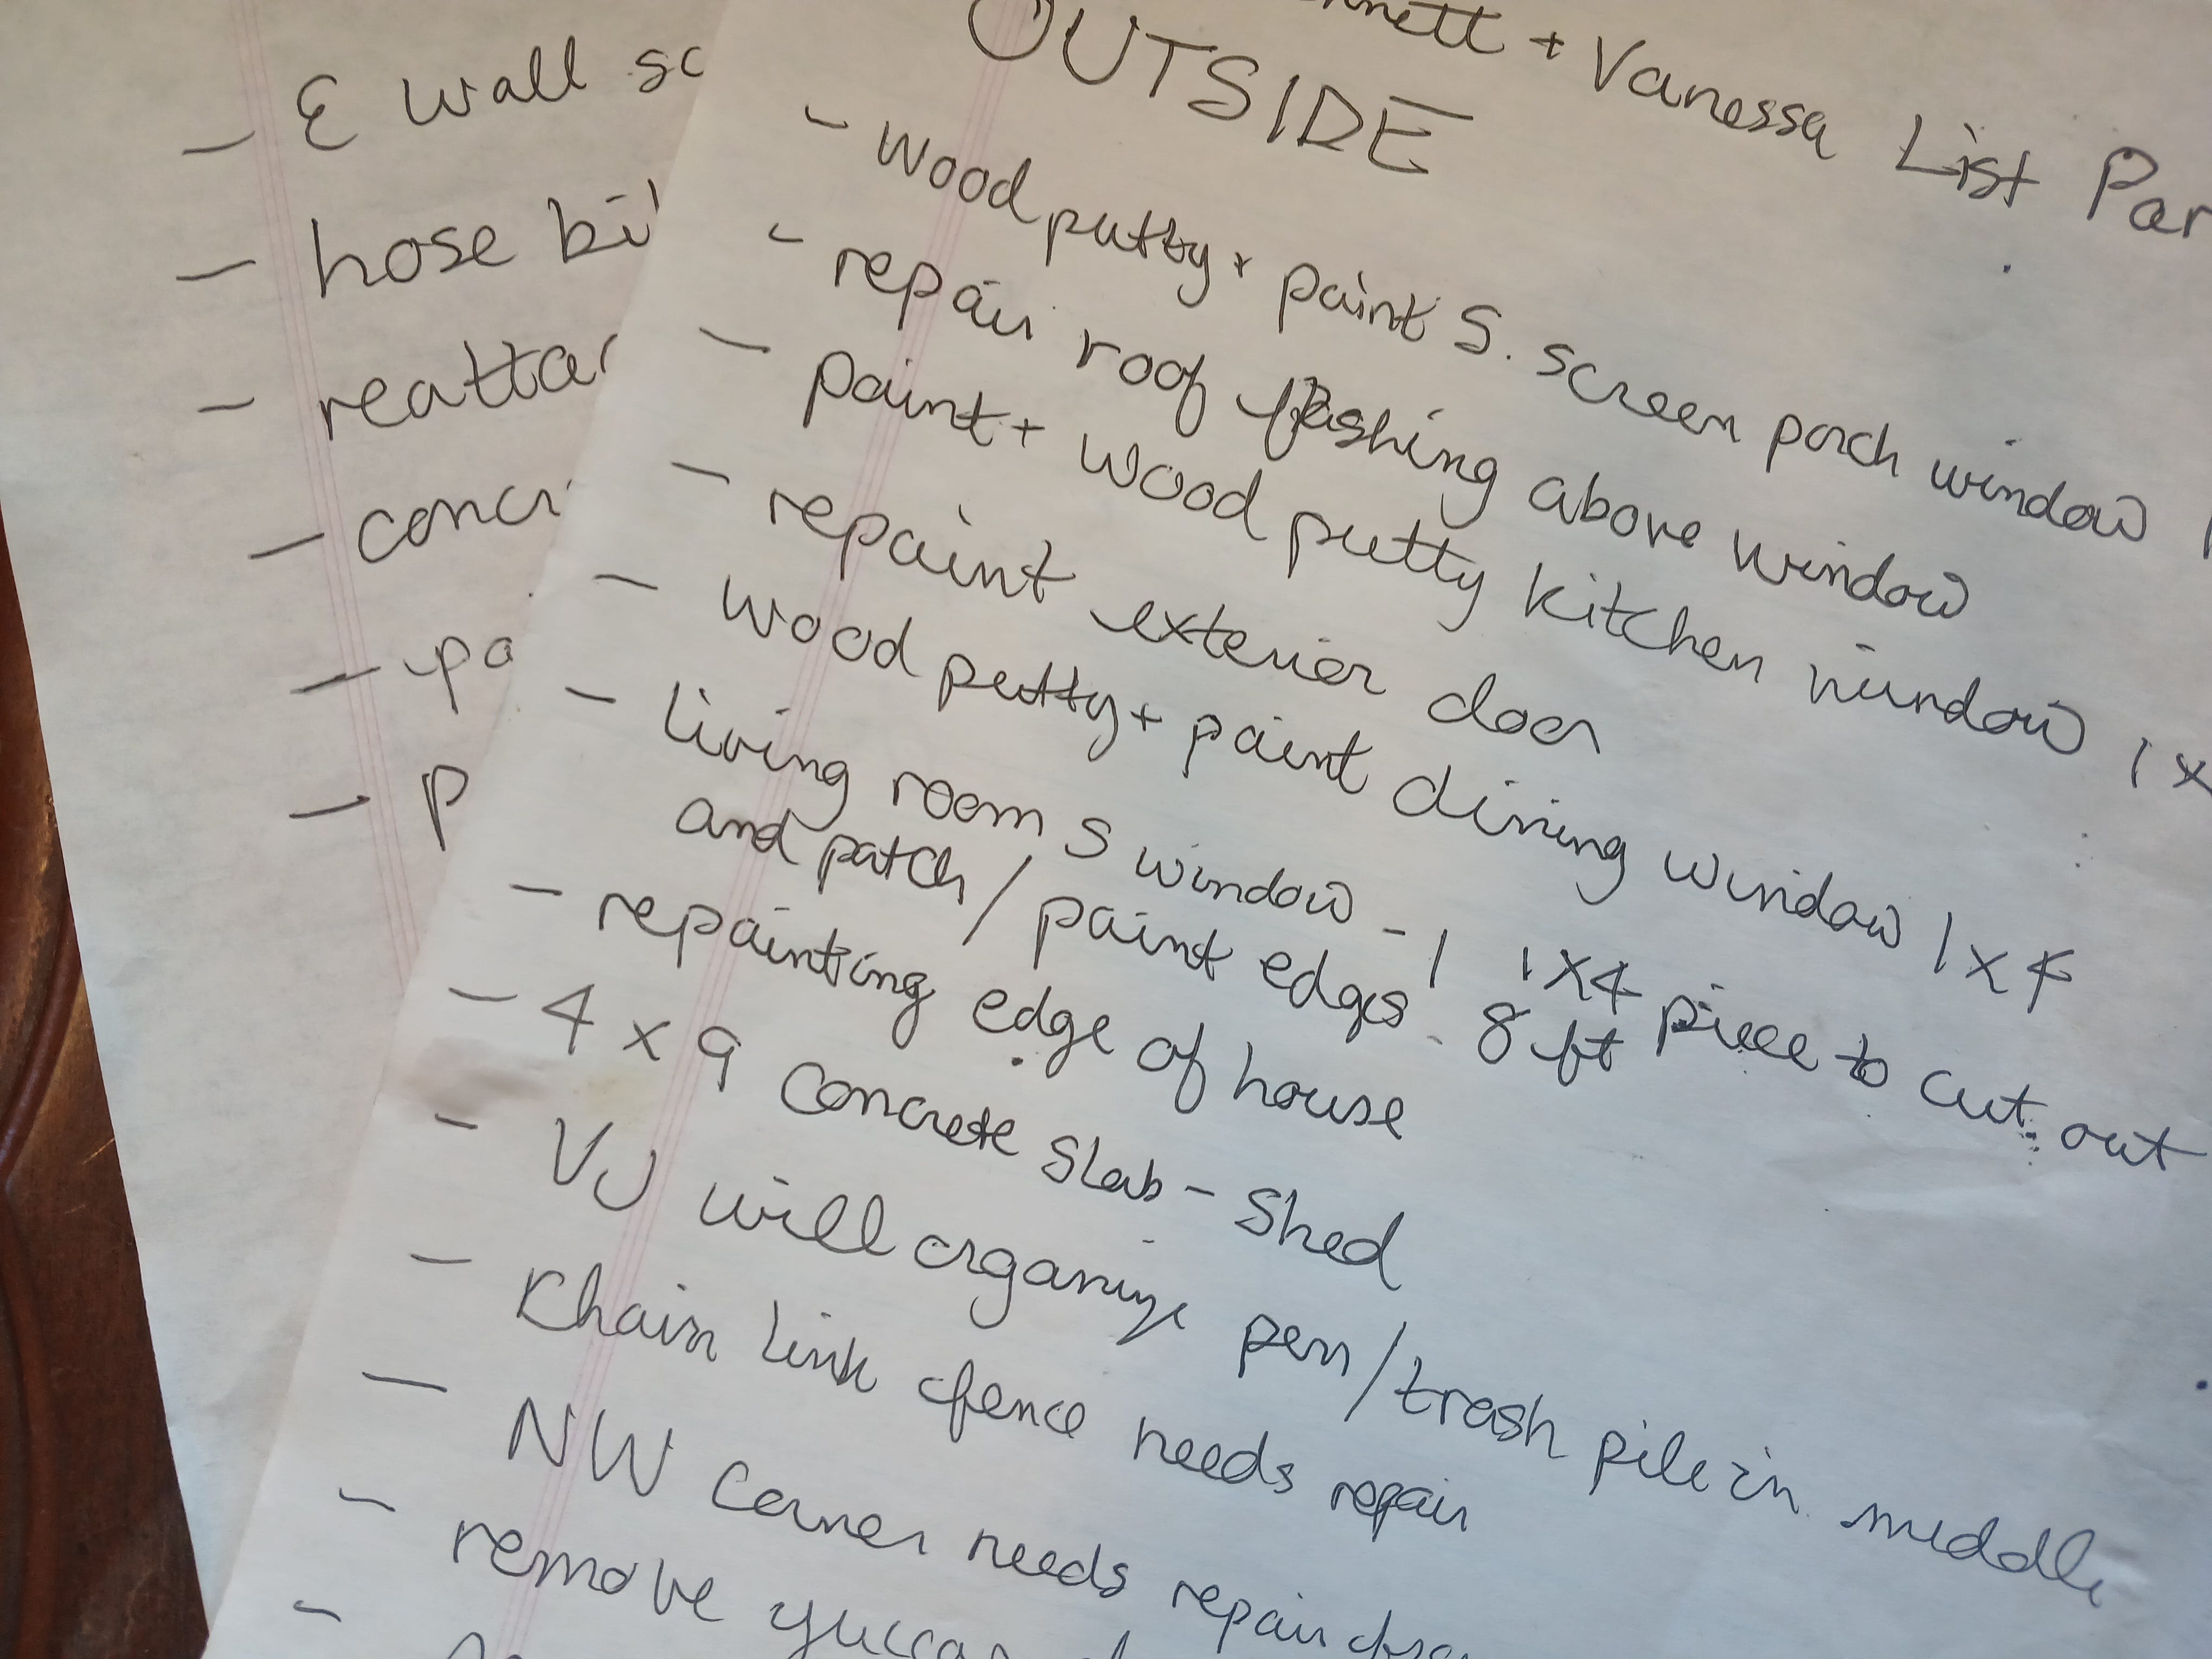 + Vanessa List
OUTSIDE
- wood putty + paint S. screen porch window
- repair roof flashing above window
- paint + wood putty kitchen window 1x
- repaint exterior door
- wood putty + paint dining window 1x4
- living room S window - 1 1x4 piece to cut out
and patch/paint edges. 8 ft
- repainting edge of house
- 4 x 9 concrete slab - shed
- VJ will organize pen/trash pile in middle
- Chain link fence needs repair
- NW corner needs repair
- remove
-
- E wall
- hose
-
-
-
-